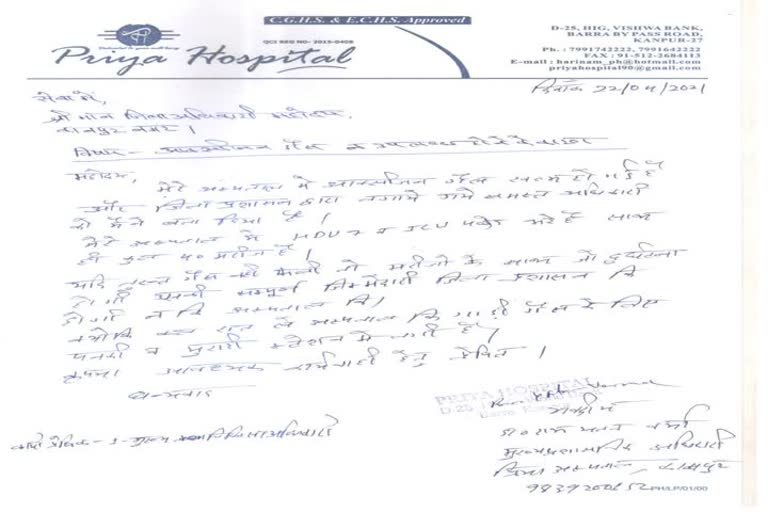 C.G.H.S. & E.C.H.S. Approved
QCI REG NO- 2015-0408
Priya Hospital
D-25, HIG, VISHWA BANK,
BARRA BY PASS ROAD,
KANPUR-27
Ph. : 7991742222, 7991642222
FAX : 91-512-2684113
E-mail : harinam_ph@hotmail.com
priyahospital90@gmail.com
दिनाँक 22/04/2021
सेवा में,
श्री मान जिलाधिकारी महोदय,
कानपुर नगर।
विषय - आक्सीजन गैस न उपलब्ध होने के
महोदय,
मेरे अस्पताल में आक्सीजन गैस खत्म हो गई है
और जिला प्रशासन द्वारा लगाये गये समस्त अधिकारी
को मैने बता दिया है।
मेरे अस्पताल में HDU व ICU भरे है
ही कुल मरीज है।
यदि गैस नही मिली तो मरीजो के साथ जो दुर्घटना
होगी उसकी सम्पूर्ण जिम्मेदारी जिला प्रशासन कि
होगी न कि अस्पताल कि।
क्योकि कल रात से अस्पताल कि गाडी गैस के लिए
पनकी व में लगी है।
कृपया आवश्यक कार्यवाही हेतु प्रेषित।
धन्यवाद
PRIYA HOSPITAL
D-25
भवदीय
डा०राम वर्मा
मुख्य प्रशासनिक अधिकारी
प्रिया अस्पताल, कानपुर
PH/LP/01/00
कापी प्रेषित - 1- मुख्य चिकित्साधिकारी